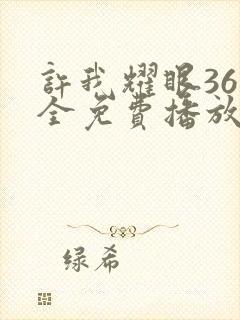 許我耀眼36
全免費播放
绿希